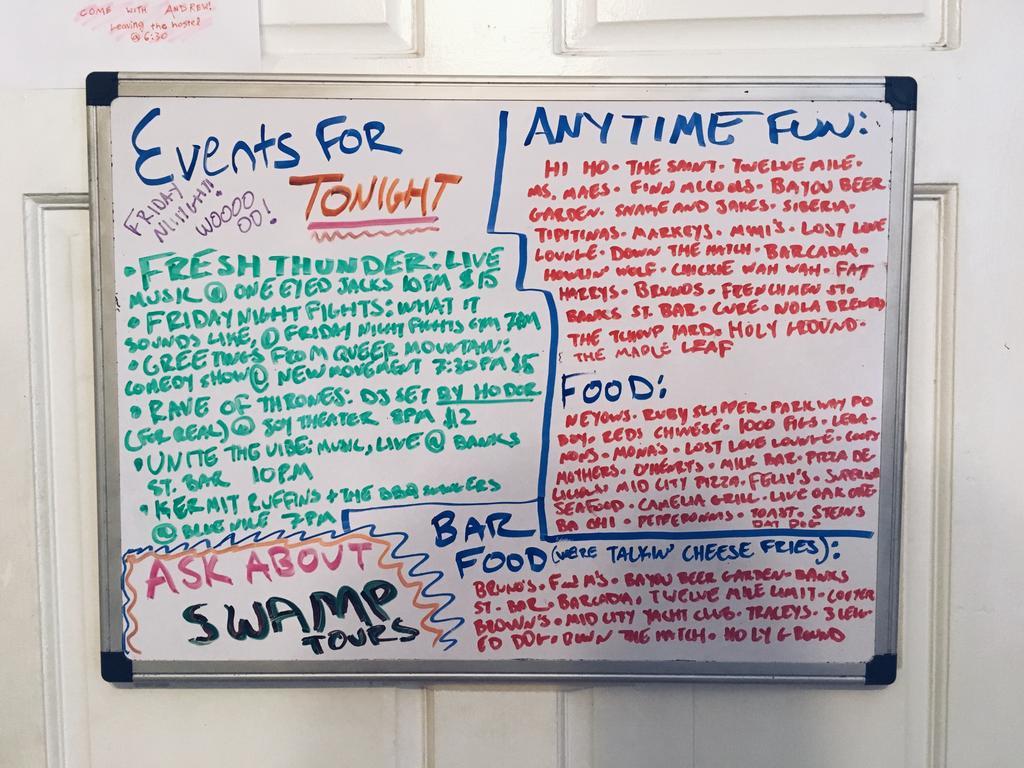 COME WITH ANDREW!
Leaving the hostel
@ 6:30
Events FOR
TONIGHT
FRIDAY
NIIIIGHT!!
WOOOO
OO!
• FRESH THUNDER: LIVE
MUSIC @ ONE EYED JACKS 10PM $15
• FRIDAY NIGHT FIGHTS: WHAT IT
SOUNDS LIKE, @ FRIDAY NIGHT FIGHTS GYM 7PM
• GREETINGS FROM QUEER MOUNTAIN:
COMEDY SHOW @ NEW MOVEMENT 7:30PM $5
• RAVE OF THRONES: DJ SET BY HODOR
(FOR REAL) @ JOY THEATER 8PM $12
• UNITE THE VIBE: MUSIC, LIVE @ BANKS
ST. BAR 10PM
• KERMIT RUFFINS + THE BBQ SWINGERS
@ BLUE NILE 7PM
ASK ABOUT
SWAMP
TOURS
ANYTIME FUN:
HI HO • THE SAINT • TWELVE MILE •
MS. MAES • FINN MCCOOLS • BAYOU BEER
GARDEN • SNAKE AND JAKES • SIBERIA •
TIPITINAS • MARKEYS • MIMI'S • LOST LOVE
LOUNGE • DOWN THE HATCH • BARCADIA •
HOWLIN' WOLF • CHICKIE WAH WAH • FAT
HARRYS • BRUNOS • FRENCHMEN ST. •
BANKS ST. BAR • CURE • NOLA BREWING
THE TCHOUP YARD • HOLY GROUND •
THE MAPLE LEAF
FOOD:
NEYOWS • RUBY SLIPPER • PARKWAY PO
BOY • REDS CHINESE • 1000 FIGS • LEBA-
NONS • MONA'S • LOST LOVE LOUNGE • COOPS
MOTHERS • O'HENRYS • MILK BAR • PIZZA DE-
LICIOUS • MID CITY PIZZA • FELIX'S •
SEAFOOD • CAMELIA GRILL • LIVE OAK CAFE
BA CHI • PEPPERONIS • TOAST • STEINS
DAT DOG
BAR
FOOD (WE'RE TALKIN' CHEESE FRIES):
BRUNO'S • F&M'S • BAYOU BEER GARDEN • BANKS
ST. BAR • BARCADIA • TWELVE MILE LIMIT • COOTER
BROWN'S • MID CITY YACHT CLUB • TRACEYS • 3 LEGG-
ED DOG • DOWN THE HATCH • HOLY GROUND